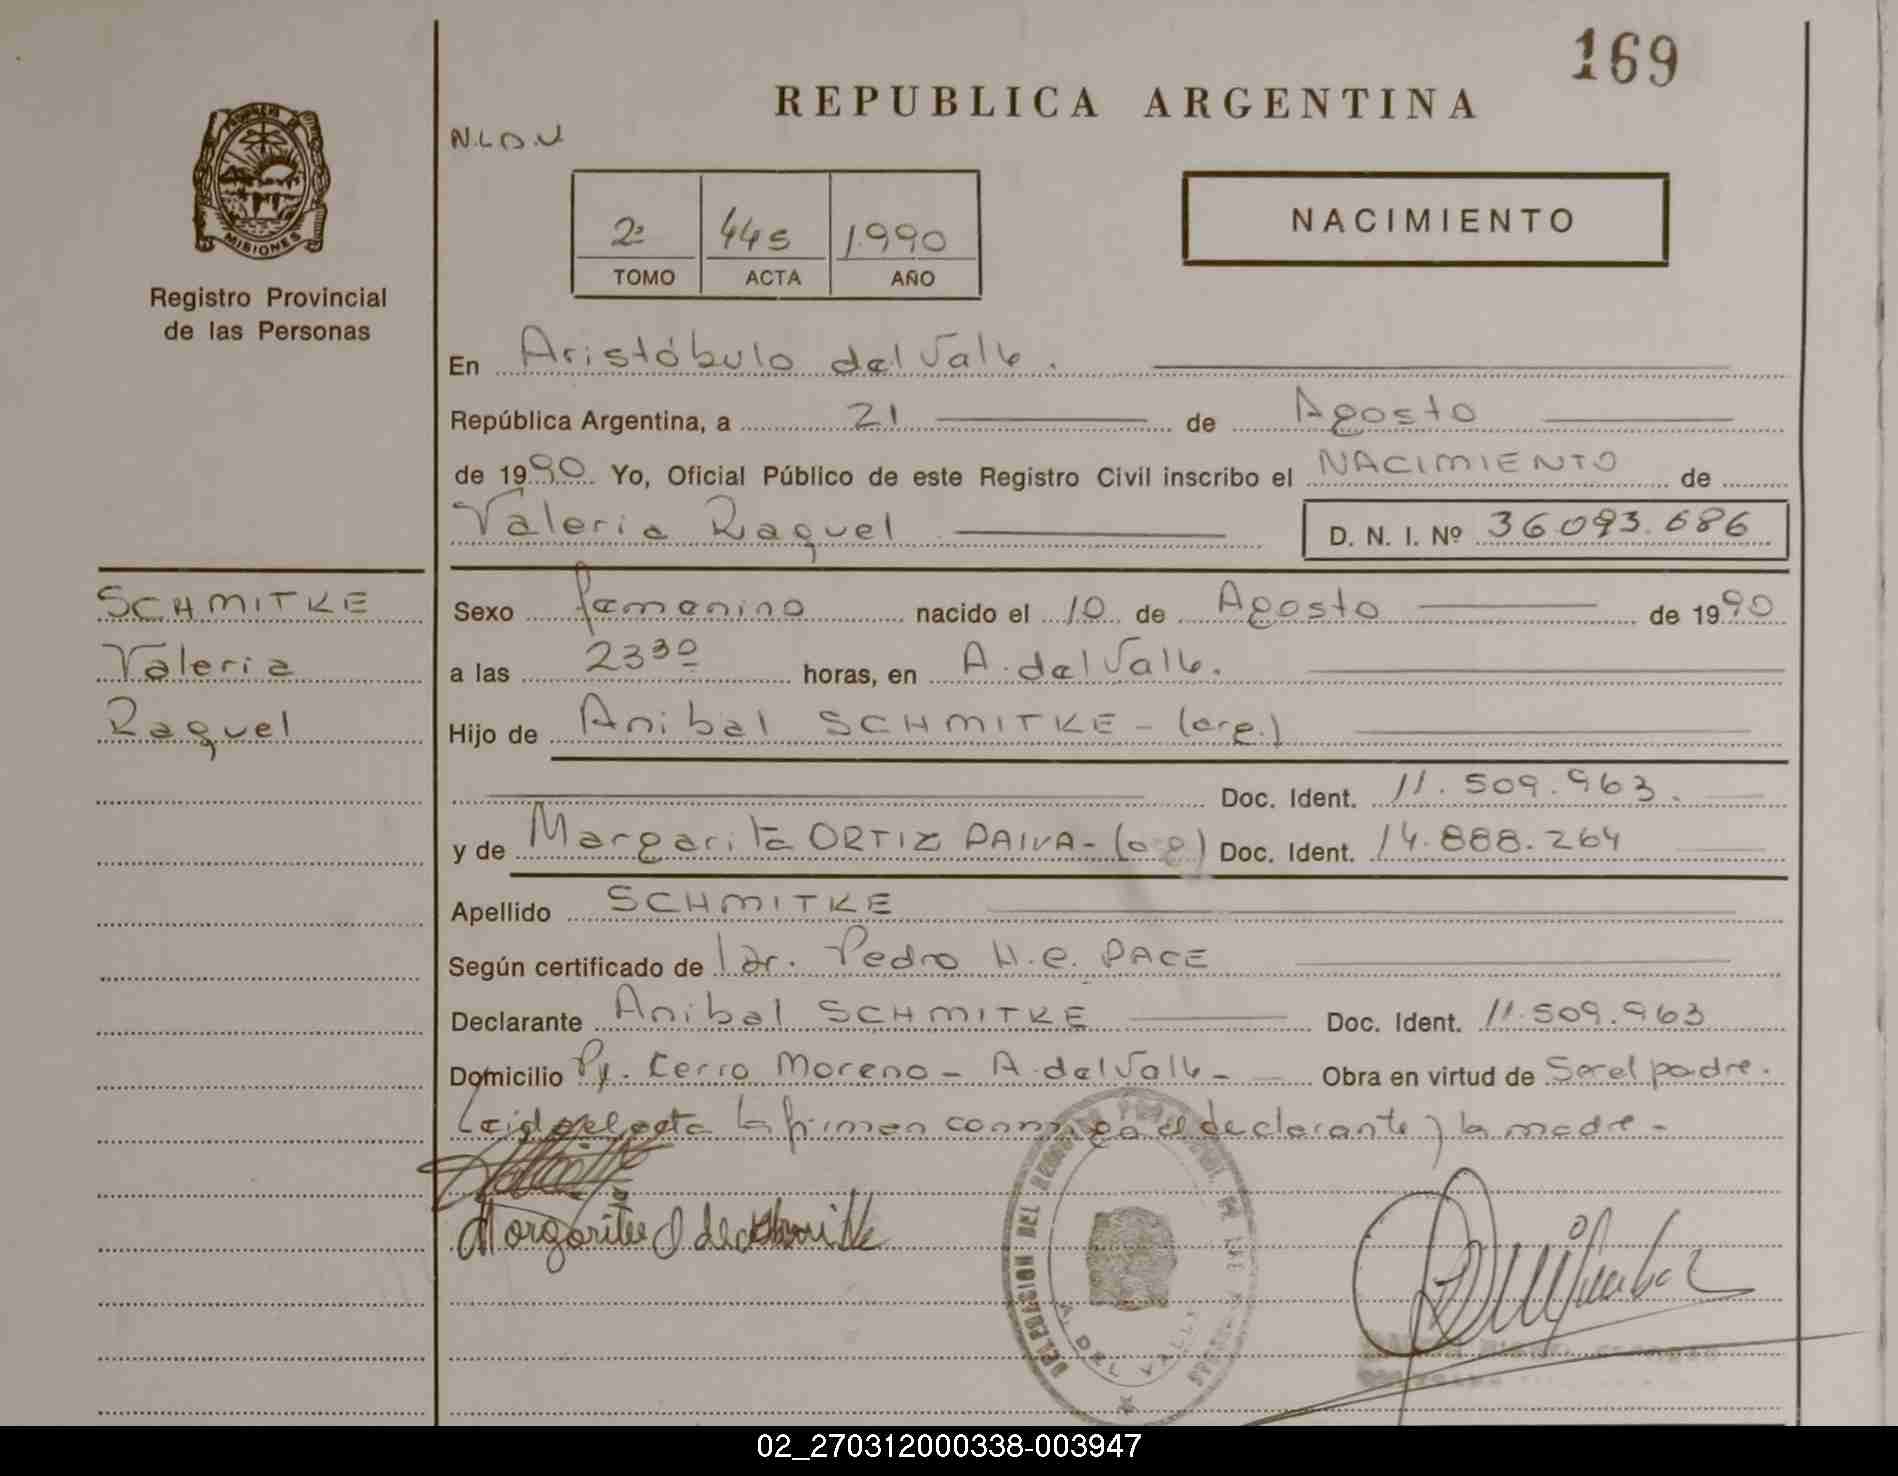 169
REPUBLICA ARGENTINA
N.L.D.U
MISIONES
Registro Provincial
de las Personas
2º 445 1990
TOMO ACTA AÑO
NACIMIENTO
En Aristóbulo del Valle.
República Argentina, a 21 de Agosto
de 1990. Yo, Oficial Público de este Registro Civil inscribo el NACIMIENTO de
Valeria Raquel D. N. I. Nº 36.093.686
SCHMITKE
Valeria
Raquel
Sexo femenino nacido el 10 de Agosto de 1990
a las 23³⁰ horas, en A. del Valle.
Hijo de Anibal SCHMITKE - (arg.)
Doc. Ident. 11.509.963.
y de Margarita ORTIZ PAIVA - (arg) Doc. Ident. 14.888.264
Apellido SCHMITKE
Según certificado de Dr. Pedro H.C. PACE
Declarante Anibal SCHMITKE Doc. Ident. 11.509.963
Domicilio Pje. Cerro Moreno - A. del Valle - Obra en virtud de Ser el padre.
Leida el acta la firman conmigo el declarante y la madre -
Margarita O de
DELEGACION DEL REGISTRO PROVINCIAL DE LAS PERSONAS
A. DEL VALLE
02_270312000338-003947